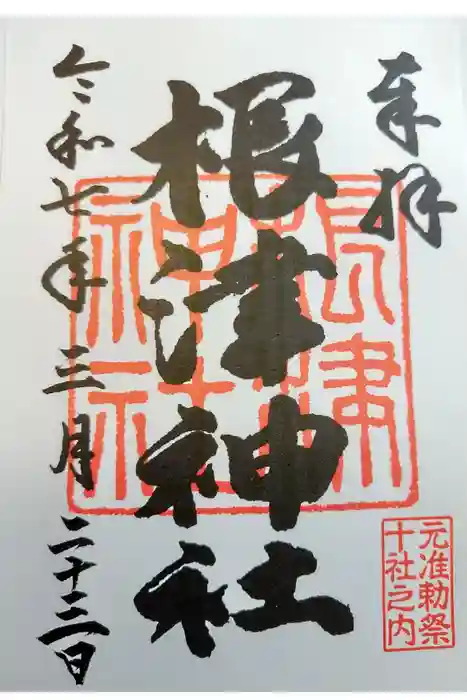 奉拝
根津神社
根津神社
元准勅祭
十社之内
令和七年三月二十三日